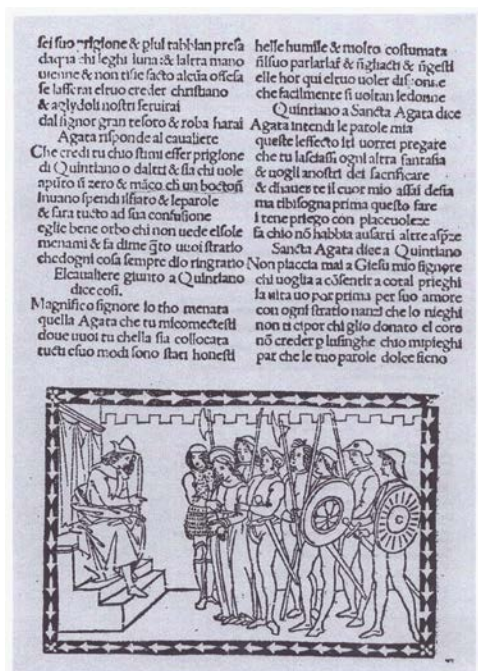 sei suo prigione & p lui tabbian presa
da qua chi leghi luna: & laltra mano
uienne & non tisie facto alcũa offesa
se lasserai eltuo creder christiano
& aglydoli nostri seruirai
dal signor gran tesoro & roba harai
Agata risponde al caualiere
Che credi tu chio stimi esser prigione
di Quintiano o daltri & sia chi uole
apũto il zero & mãco chi un bottoñ
inuano spendi ilfiato & leparole
& sara tucto ad sua confusione
eglie bene orbo chi non uede elsole
menami & fa dime q̃to uuoi stratio
che dogni cosa sempre dio ringratio
Elcaualiere giunto a Quintiano
dice cosi.
Magnifico signore io tho menata
quella Agata che tu micomectesti
doue uuoi tu chella sia collocata
tucti esuo modi sono stati honesti
helle humile & molto costumata
ñlsuo parlarlaf & ñgliacti & ñgesti
elle hor qui eltuo uoler disponee
che facilmente si uoltan ledonne
Quintiano a Sancta Agata dice
Agata intendi le parole mia
queste leffecto iti uorrei pregare
che tu lasciassi ogni altra fantasia
& uogli anostri dei sacrificare
& dhauer te il cuor mio assai desia
ma tibisogna prima questo fare
i tene priego con piaceuoleze
fa chio nõ habbia ausarti altre asp̃ze
Sancta Agata dice a Quintiano
Non placcia mai a Giesu mio signore
chi uoglia a cõsentir a cotal prieghi
la uita uo por prima per suo amore
con ogni stratio nanzi che lo nieghi
non ti cipor chi glio donato el core
nõ creder p lusinghe chio mipieghi
par che le tuo parole dolce sieno